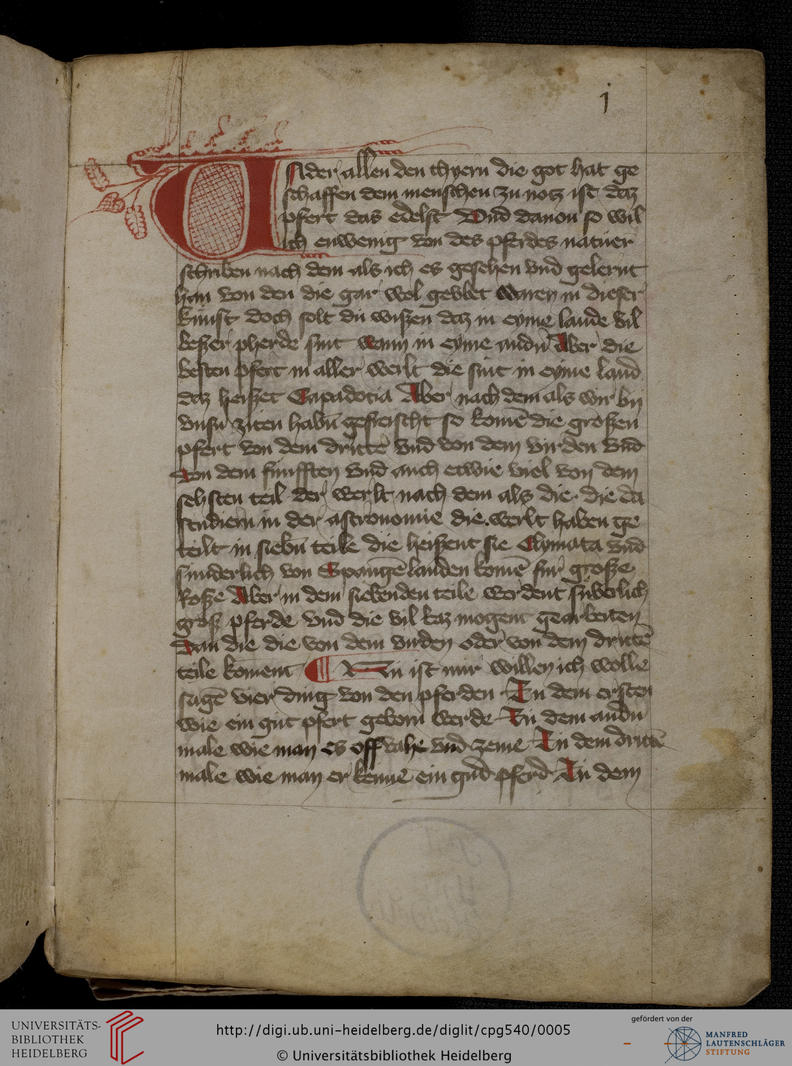 j
UNder allen den thyern die got hat ge
schaffen dem menschen zu notz ist daz
pfert das edelst Vnd dauon so wil
ich enwenig von des pferdes natuer
schriben nach dem als ich es gesehen vnd gelernt
han von den die gar wol geubet waren in dieser
kunst doch solt du wiszen daz in eyme lande vil
beszer pherde sint wann in eyme andn Aber die
besten pfert in aller werlt die sint in eyme land
daz heiszet Capadocia Aber nach dem als wir by
vnsn ziten habn gefreischt so komē die groszen
pfert von dem drittē vnd von dem virden vnd
von dem funfften vnd auch etwie viel von dem
sehsten teil der werlt nach dem als die die da
studiern in der astronomie die werlt haben ge
teilt in siebn teile die heiszent sie Clymata vnd
sunderlich von Spangē landen komē fur grosze
Rosze Aber in dem siebenden teile werdent suberlich
grosz pferde vnd die vil baz mogent gearbeiten
dan die die von dem virden oder von dem drittē
teile koment ¶ Nu ist mir willen ich wolle
sagē vier ding von den pferden In dem ersten
wie ein gut pfert geborn werde In dem andn
male wie man es off vahe vnd zeme In dem drittē
male wie man er kenne ein gud pferd In dem
UNIVERSITÄTS-
BIBLIOTHEK
HEIDELBERG
http://digi.ub.uni-heidelberg.de/diglit/cpg540/0005
© Universitätsbibliothek Heidelberg
gefördert von der
MANFRED
LAUTENSCHLÄGER
STIFTUNG